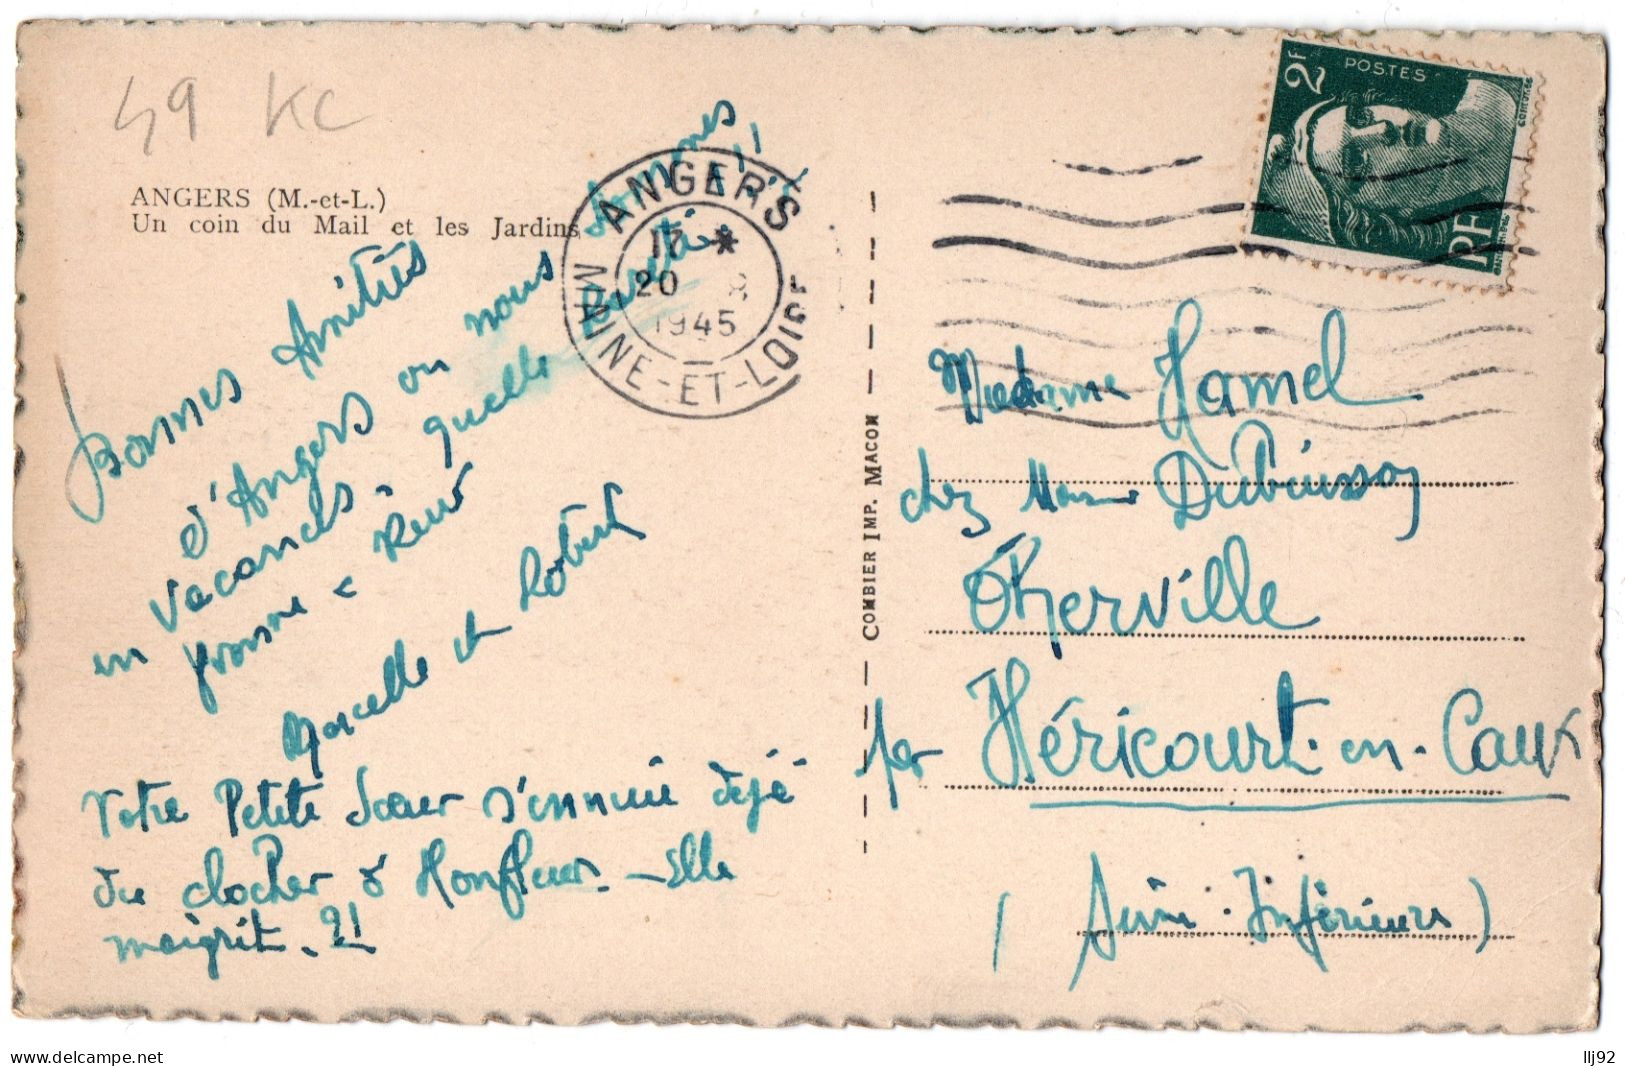 49 KC
ANGERS (M.-et-L.)
Un coin du Mail et les Jardins
Bonnes Amitiés
d'Angers ou nous sommes
en vacances - quelle
!!
Marcelle et Robert
Votre Petite Sœur s'ennuie déjà
du clocher d'Honfleur - Elle
maigrit - ?!
ANGERS
17 *
20 8
1945
MAINE-ET-LOIRE
COMBIER IMP. MACON
2F
POSTES
RF
Madame Hamel
chez
Otherville
par Héricourt-en-Caux
(Seine-Inférieure)
delcampe.net
llj92